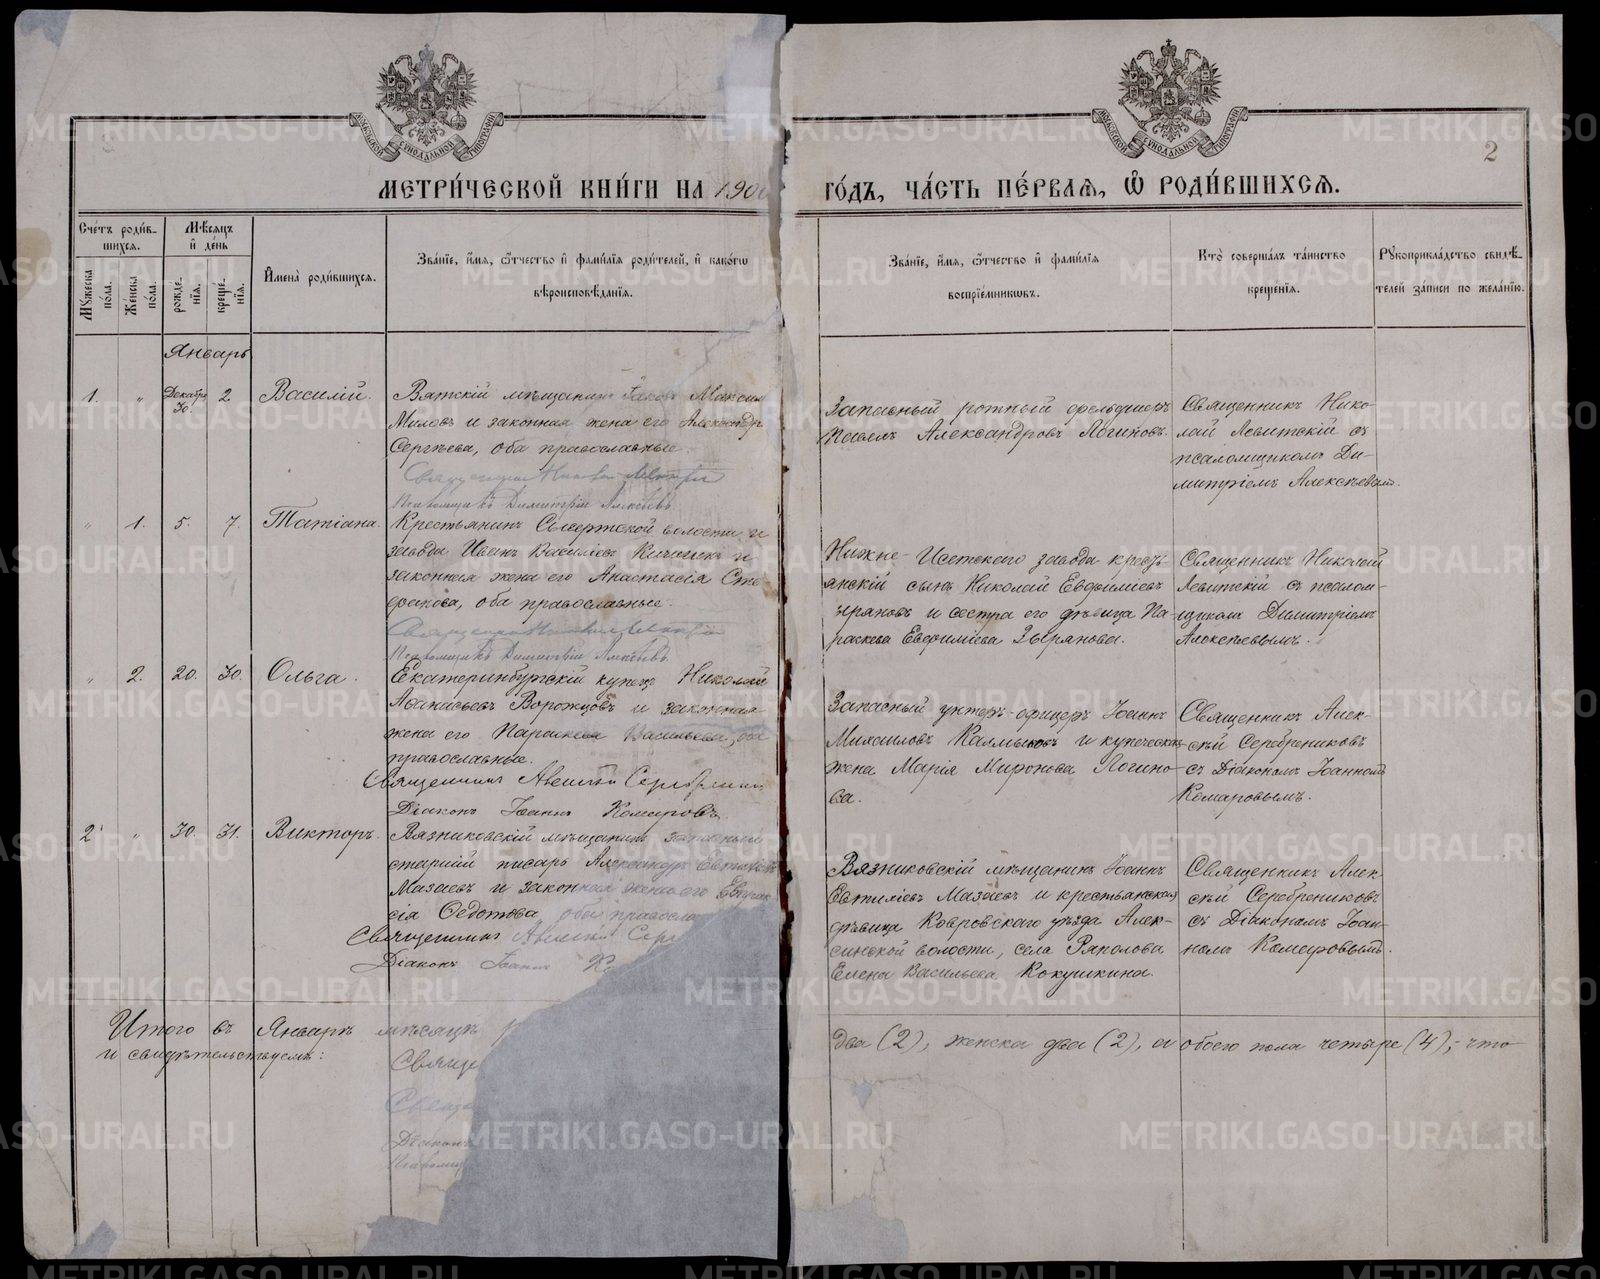 МЕТРИ́ЧЕСКОЙ КНИ́ГИ НА 190
ГО́ДЪ, ЧА́СТЬ ПЕ́РВАЯ, Ѿ РОДИ́ВШИХСЯ.
2
Сче́тъ роди́в-
шихся.
Мѣсяцъ
и҆ де́нь
Мꙋжеска по́ла.
Же́нска по́ла.
рожде́-
нїѧ.
креще́-
нїѧ.
И҆мена̀ роди́вшихся.
Зва́нїе, и҆́мѧ, ѻ҆́тчество и҆ фами́лїѧ роди́телей, и҆ како́гѡ
вѣроисповѣ́данїѧ.
Зва́нїе, и҆́мѧ, ѻ҆́тчество и҆ фами́лїѧ
воспрїе́мникѡвъ.
Кто̀ соверша́лъ та́инство
креще́нїѧ.
Рꙋкоприкла́дство свидѣ́-
телей за́писи по жела́нїю.
Январь
1. " Декабр. 30. 2 Василій.
Вятскій мѣщанинъ Іаковъ Максим
Миловъ и законная жена его Александр
Сергѣева, оба православные.
Священникъ Николай Левитскій
Псаломщикъ Димитрій Алексѣевъ.
Запасный ротный фельдшеръ
Павелъ Александровъ Логиновъ.
Священникъ Нико-
лай Левитскій съ
псаломщикомъ Ди-
митріемъ Алексѣевымъ.
" 1. 5. 7. Татіана.
Крестьянинъ Сысертской волости и
завода Иванъ Васильевъ и
законная жена его Анастасія Сте
фанова, оба православные.
Священникъ Николай Левитскій
Псаломщикъ Димитрій Алексѣевъ.
Нижне-Исетского завода кресть-
янскій сынъ Николай Евфиміевъ
Зыряновъ и сестра его дѣвица Па-
раскева Евфиміева Зырянова.
Священникъ Николай
Левитскій съ псалом-
щикомъ Димитріемъ
Алексѣевымъ.
" 2. 20. 30. Ольга.
Екатеринбургскій купецъ Николай
Аѳанасьевъ Ворожцовъ и законная
жена его Параскева Васильева, оба
православные.
Священникъ Алексѣй Серебренник
Діаконъ Іоаннъ Комаровъ.
Запасный унтеръ-офицеръ Іоаннъ
Михаиловъ Калмыковъ и купеческая
жена Марія Миронова Логино-
ва.
Священникъ Алек-
сѣй Серебрениковъ
съ Діакономъ Іоанномъ
Комаровымъ.
2 " 30. 31. Викторъ.
Вязниковскій мѣщанинъ запасный
старшій писарь Александръ Евтиміевъ
Мазаевъ и законная жена его
сія Ѳедотова, оба правосла
Священникъ Алексѣй Сер
Діаконъ Іоаннъ Ко
Вязниковскій мѣщанинъ Іоаннъ
Евтиміевъ Мазаевъ и крестьянская
дѣвица Ковровскаго уѣзда Алек-
синской волости, села Ряполова
Елена Васильева Кокушкина.
Священникъ Алек-
сѣй Серебрениковъ
съ Діакономъ Іоан-
номъ Комаровымъ.
Итого въ Январѣ мѣсяцѣ р
два (2), женска два (2), а обоего пола четыре (4), что
и свидѣтельствуемъ:
Свяще
Свяще
Діаконъ
Псаломщ
METRIKI.GASO-URAL.RU